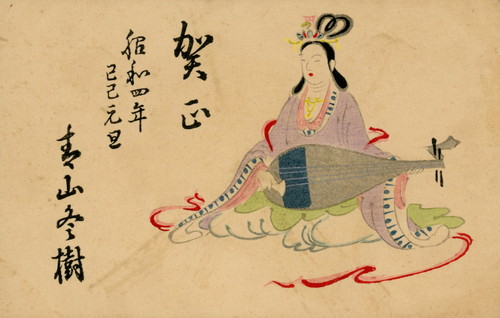 賀正
昭和四年
己巳元旦
青山冬樹